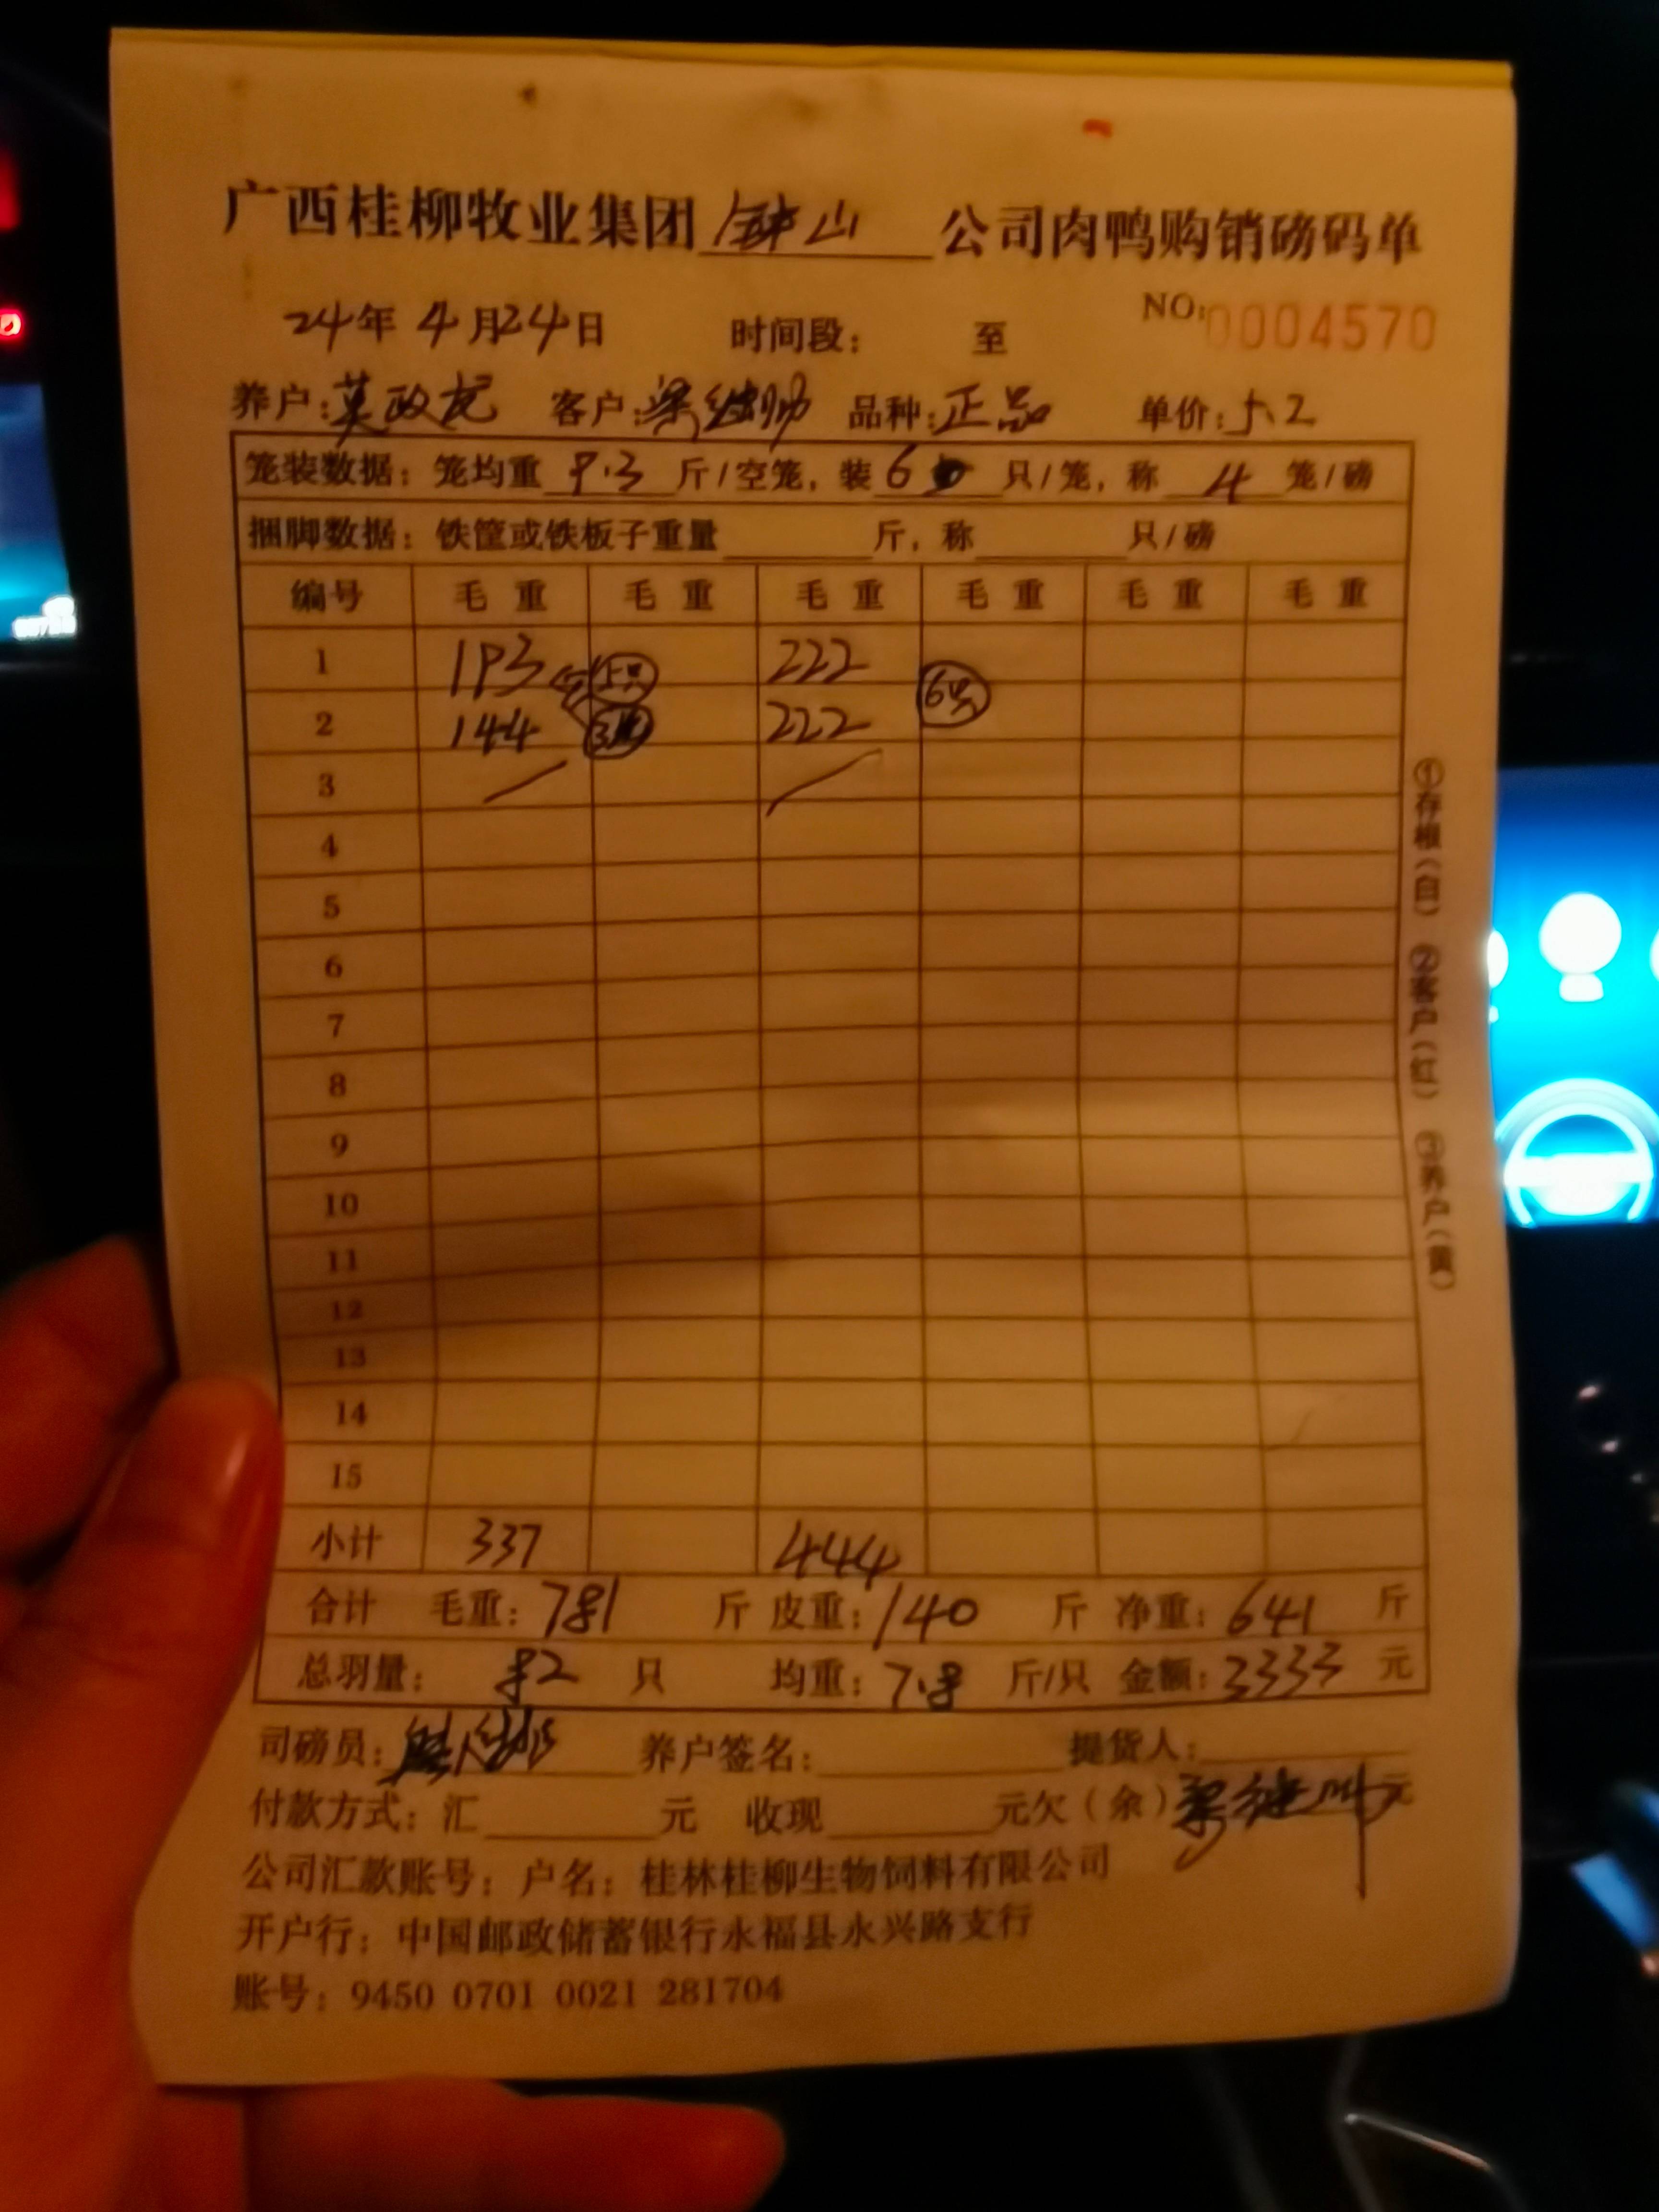 广西桂柳牧业集团 钟山 公司肉鸭购销磅码单
24年 4月24日 时间段: 至 NO:0004570
养户: 客户: 品种:正品 单价:5.2
笼装数据: 笼均重 斤/空笼, 装 6 只/笼, 称 4 笼/磅
捆脚数据: 铁筐或铁板子重量 斤, 称 只/磅
编号 毛重 毛重 毛重 毛重 毛重 毛重
1 193 5只 222 6只
2 144 222
3
4
5
6
7
8
9
10
11
12
13
14
15
小计 337 444
合计 毛重:781 斤 皮重:140 斤 净重:641 斤
总羽量: 82 只 均重:7.8 斤/只 金额:3333 元
司磅员: 养户签名: 提货人:
付款方式: 汇 元 收现 元欠(余) 元
公司汇款账号: 户名: 桂林桂柳生物饲料有限公司
开户行: 中国邮政储蓄银行永福县永兴路支行
账号: 9450 0701 0021 281704
①存根(白) ②客户(红) ③养户(黄)